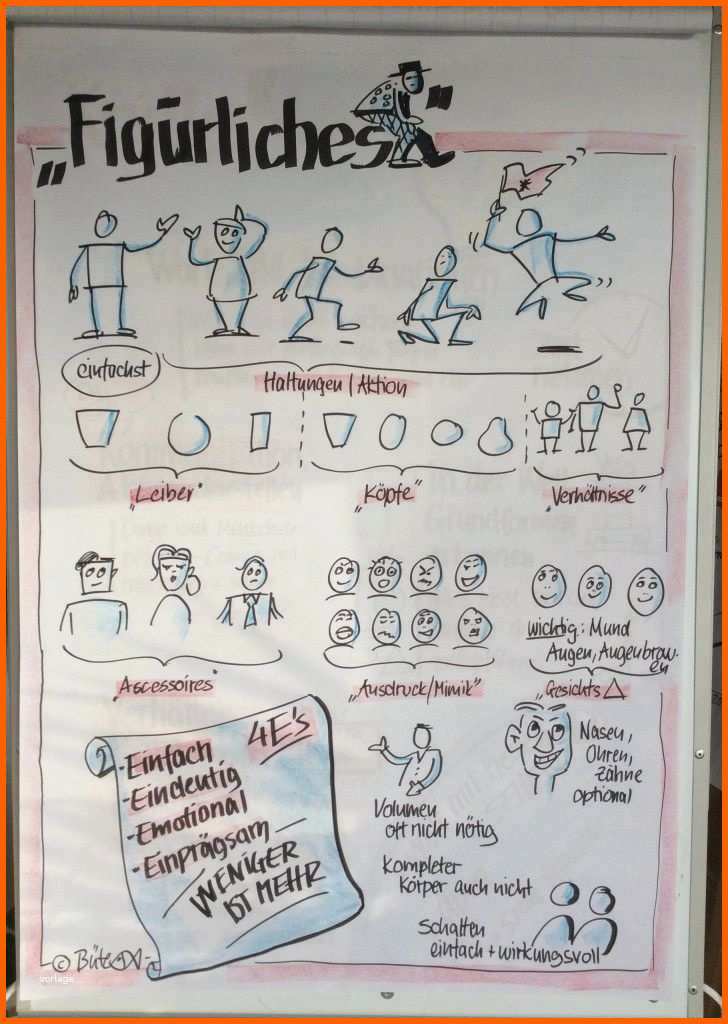 „Figürliches"
einfachst
Haltungen / Aktion
„Leiber"
„Köpfe"
„Verhältnisse"
wichtig: Mund
Augen, Augenbrau-
en
„Ascessoires"
„Ausdruck/Mimik"
„Gesichts △
4E's
- Einfach
- Eindeutig
- Emotional
- Einprägsam
WENIGER
IST MEHR
Nasen,
Ohren,
Zähne
optional
Volumen
oft nicht nötig
Kompleter
Körper auch nicht
Schatten
einfach + wirkungsvoll
©
vorlage